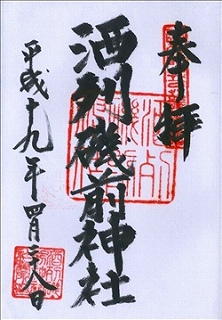 奉拝
酒列磯前神社
平成十九年四月二十八日